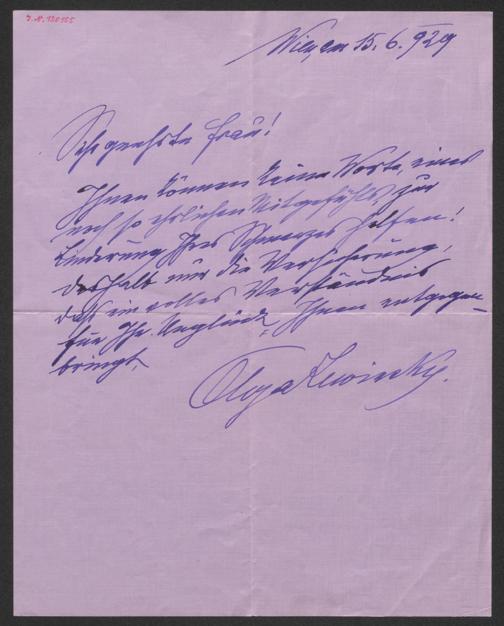 J.N. 120155
Wien, am 15. 6. 929
Sehr geehrte Frau!
Ihnen können keine Worte, eines
noch so ehrlichen Mitgefühls, zur
Linderung Ihres Schmerzes helfen!
Deshalb nur die Versicherung,
daß ein volles Verständnis
für Ihr Unglück, Ihnen entgegen-
bringt,
Olga Lewinsky.